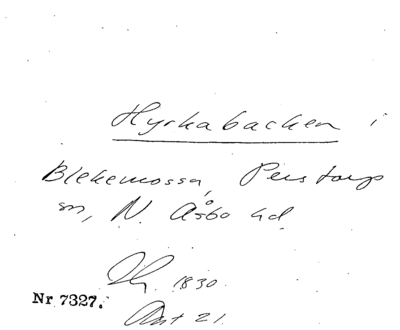 Hyrkabacken i
Blekemossa, Perstorps
sn, N. Åsbo hd.
1830.
Nr 7327.
21.